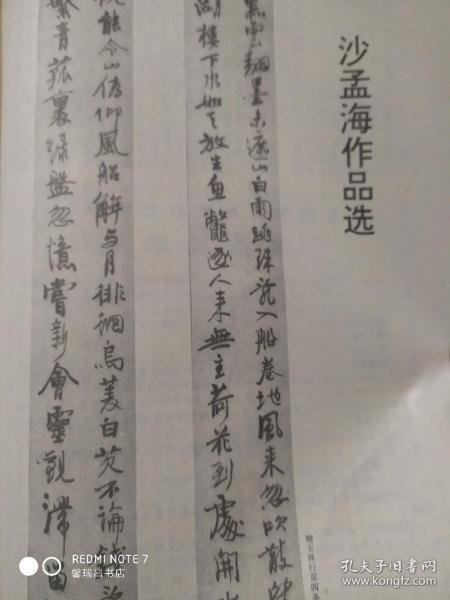 沙孟海作品选
黑雲翻墨未遮山白雨跳珠亂入船卷地風来忽吹散望
湖樓下水如天放生魚鼈逐人来無主荷花到處開水
枕能令山俯仰風船解与月徘徊烏菱白芡不論錢亂
繫青菰裹緑盤忽憶嘗新會靈觀滯留
行草四条
REDMI NOTE 7
馨瑞合书店
孔夫子旧书网